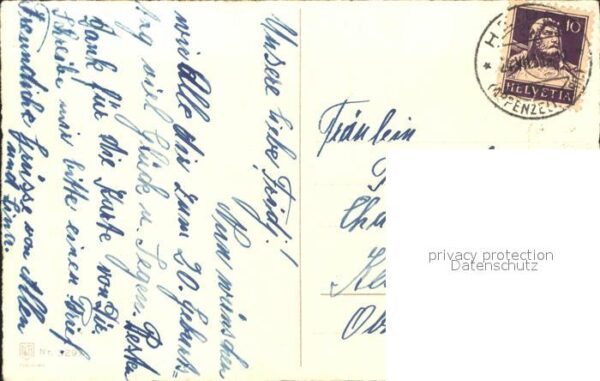 Unsere liebe Fridj!
Nun wünschen
wir Alle dir zum 20. Geburts=
tag viel Glück u. Segen. Besten
Dank für die Karte von Dir.
Schreibe mir bitte einen Brief
Freundliche Grüsse von Allen
und Lina.
Fräulein
10
HELVETIA
(APPENZELL
privacy protection
Datenschutz
Nr.